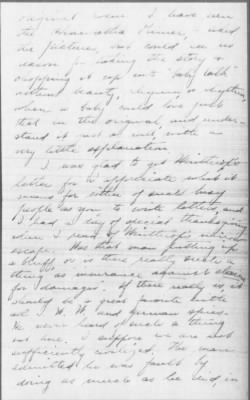 original poem. I have seen
the Hiawatha Primer, & used
the pictures, but could see no
reason for taking the story &
chopping it up into "baby talk"
without beauty, rhyme, or rhythm,
when a baby could love just
that in the original, and under-
stand it just as well, with a
very little explanation.
I was glad to get Winthrop's
letter for I appreciate what it
means for either of such busy
people as you to write letters, and
I had a day of special thanksgiving
when I read of Winthrop's
escape. Was that man putting up
a bluff or is there really such a
thing as insurance against
for damages. If there really is, it
should be a great favorite with
W. W. and german spies.
We never heard of such a thing
out here. I suppose we are not
sufficiently civilized. The man
admitted he was fault by
doing as much as he did, in